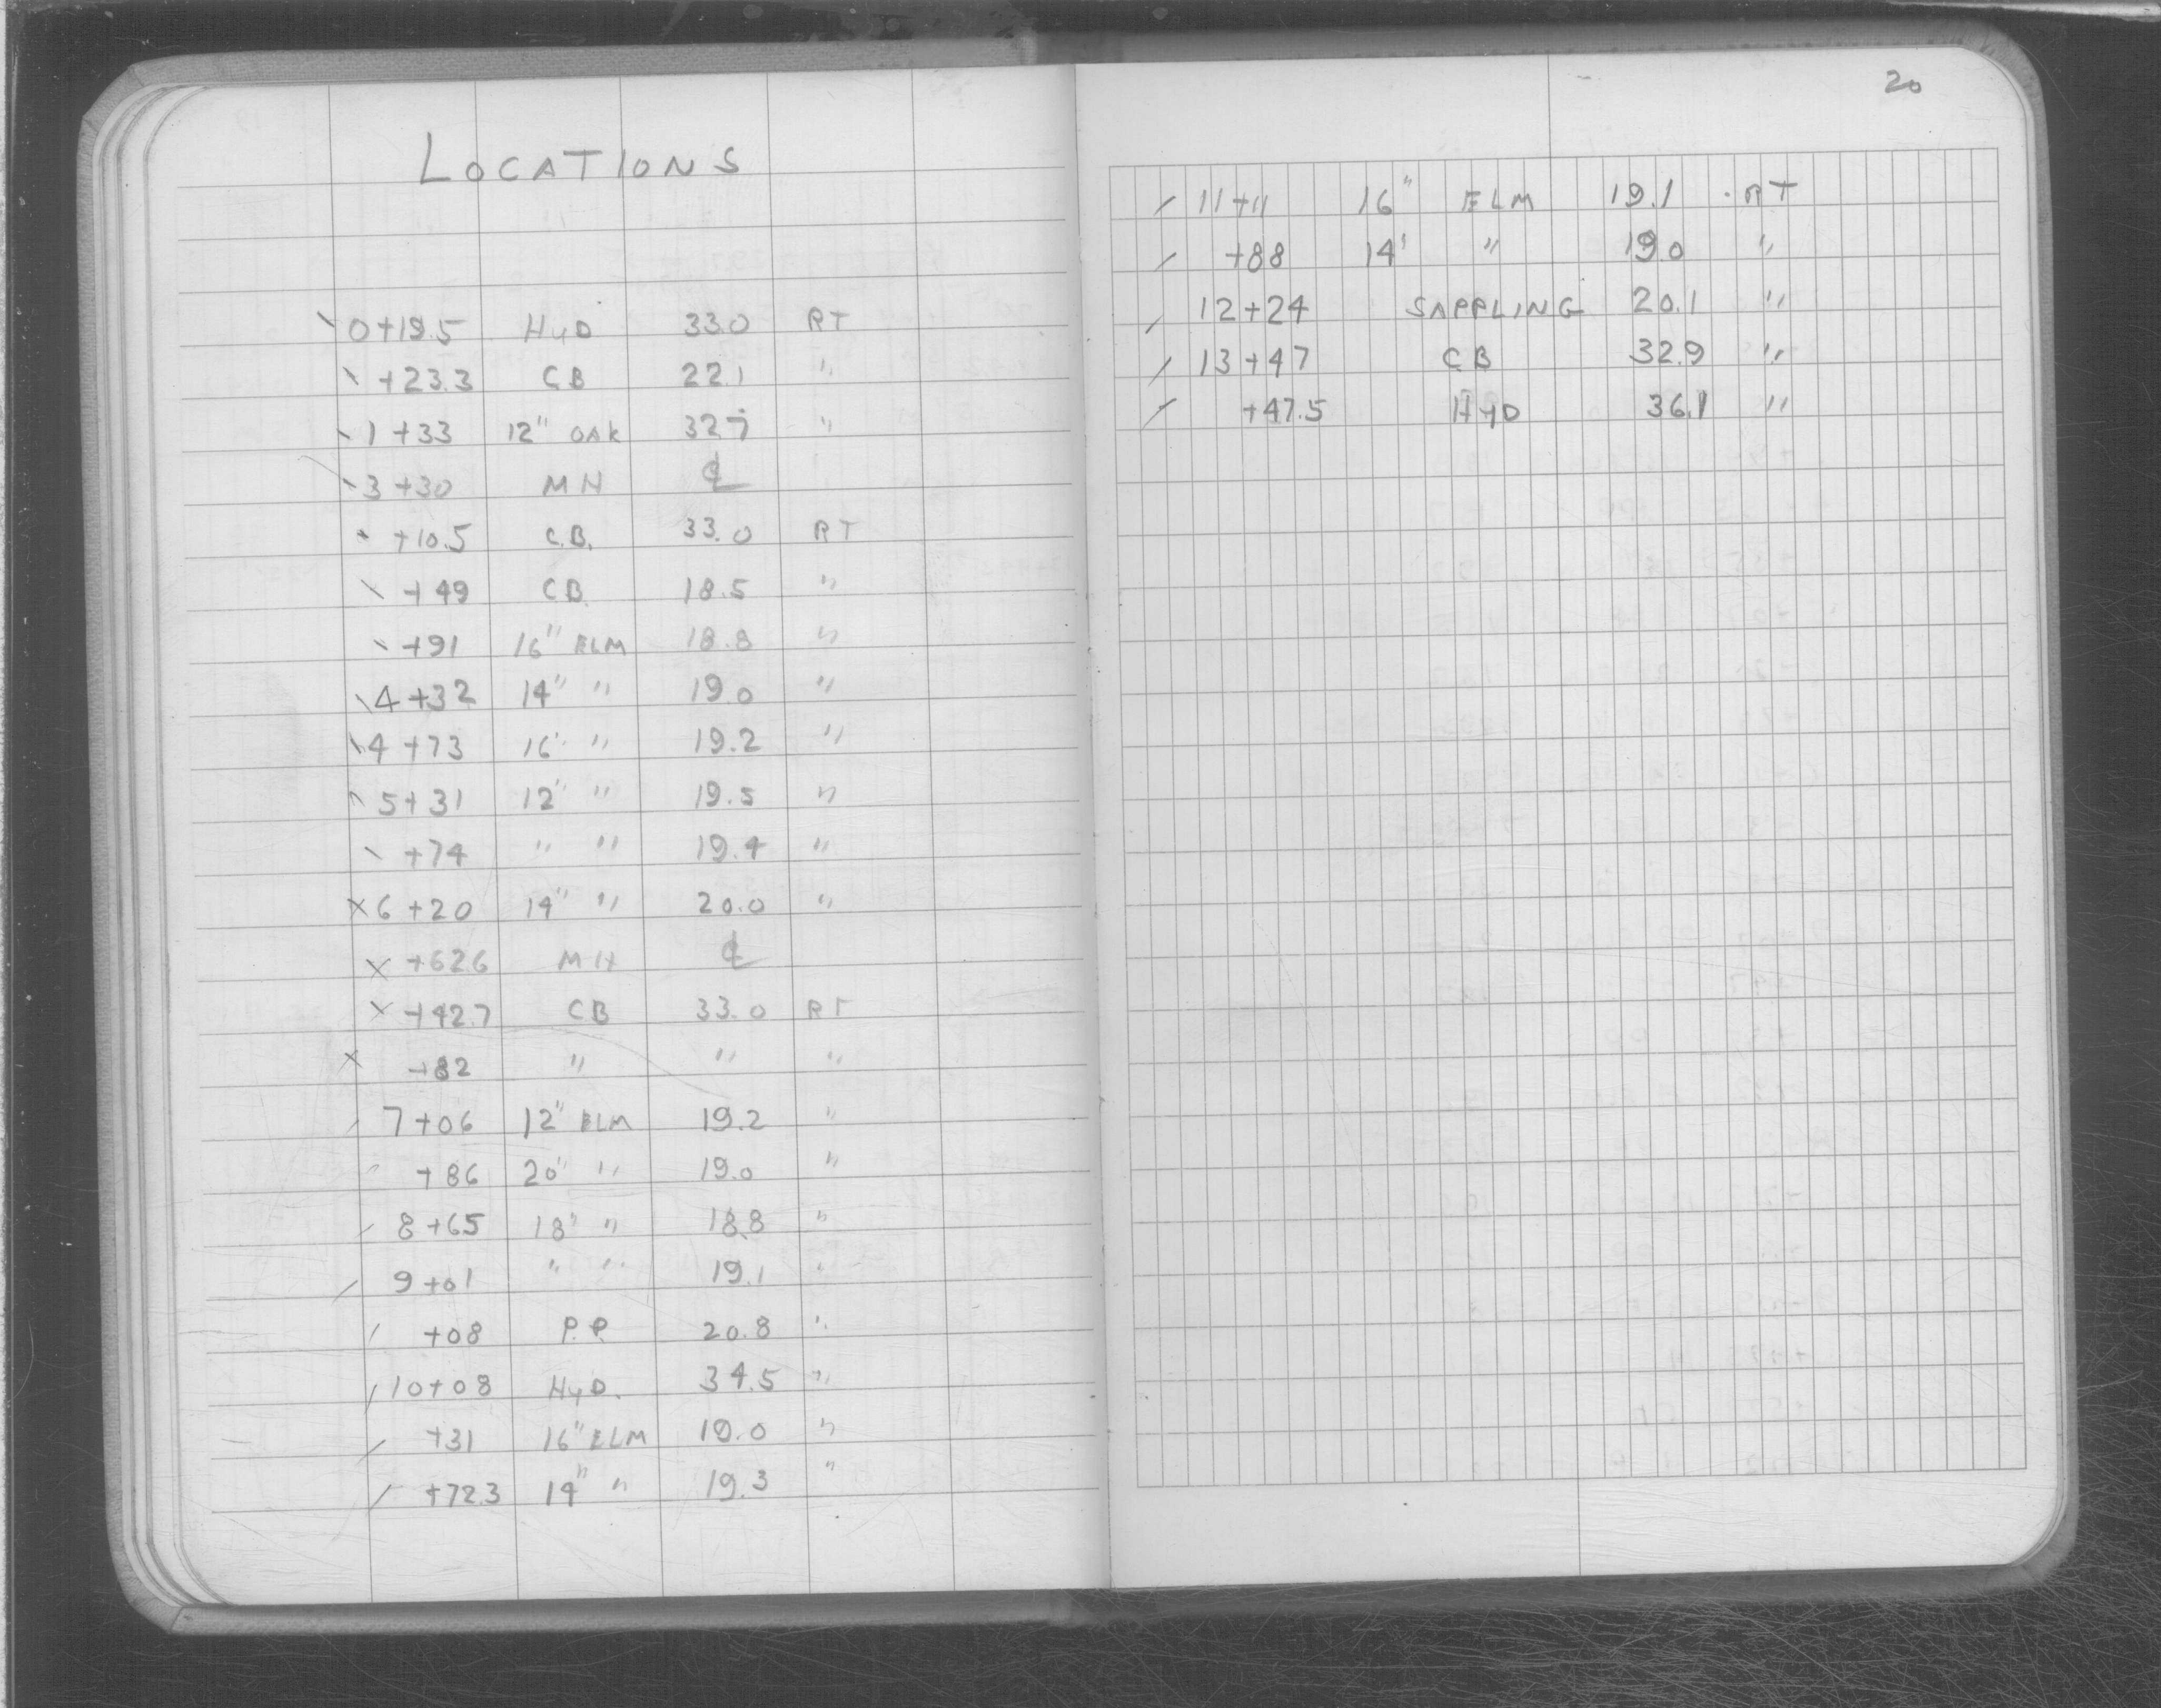 LOCATIONS
0+19.5 HYD 33.0 RT
+23.3 CB 22.1 "
1+33 12" OAK 32.7 "
3+30 MH ℄
+10.5 C.B. 33.0 RT
+49 CB 18.5 "
+91 16" ELM 18.8 "
4+32 14" " 19.0 "
4+73 16" " 19.2 "
5+31 12" " 19.5 "
+74 " " 19.4 "
6+20 14" " 20.0 "
+62.6 MH ℄
+42.7 CB 33.0 RT
+82 " " "
7+06 12" ELM 19.2 "
+86 20" " 19.0 "
8+65 18" " 18.8 "
9+01 " " 19.1 "
+08 P.P. 20.8 "
10+08 HYD. 34.5 "
+31 16" ELM 19.0 "
+72.3 14" " 19.3 "
20
11+11 16" ELM 19.1 RT
+88 14' " 19.0 "
12+24 SAPPLING 20.1 "
13+47 CB 32.9 "
+47.5 HYD 36.1 "